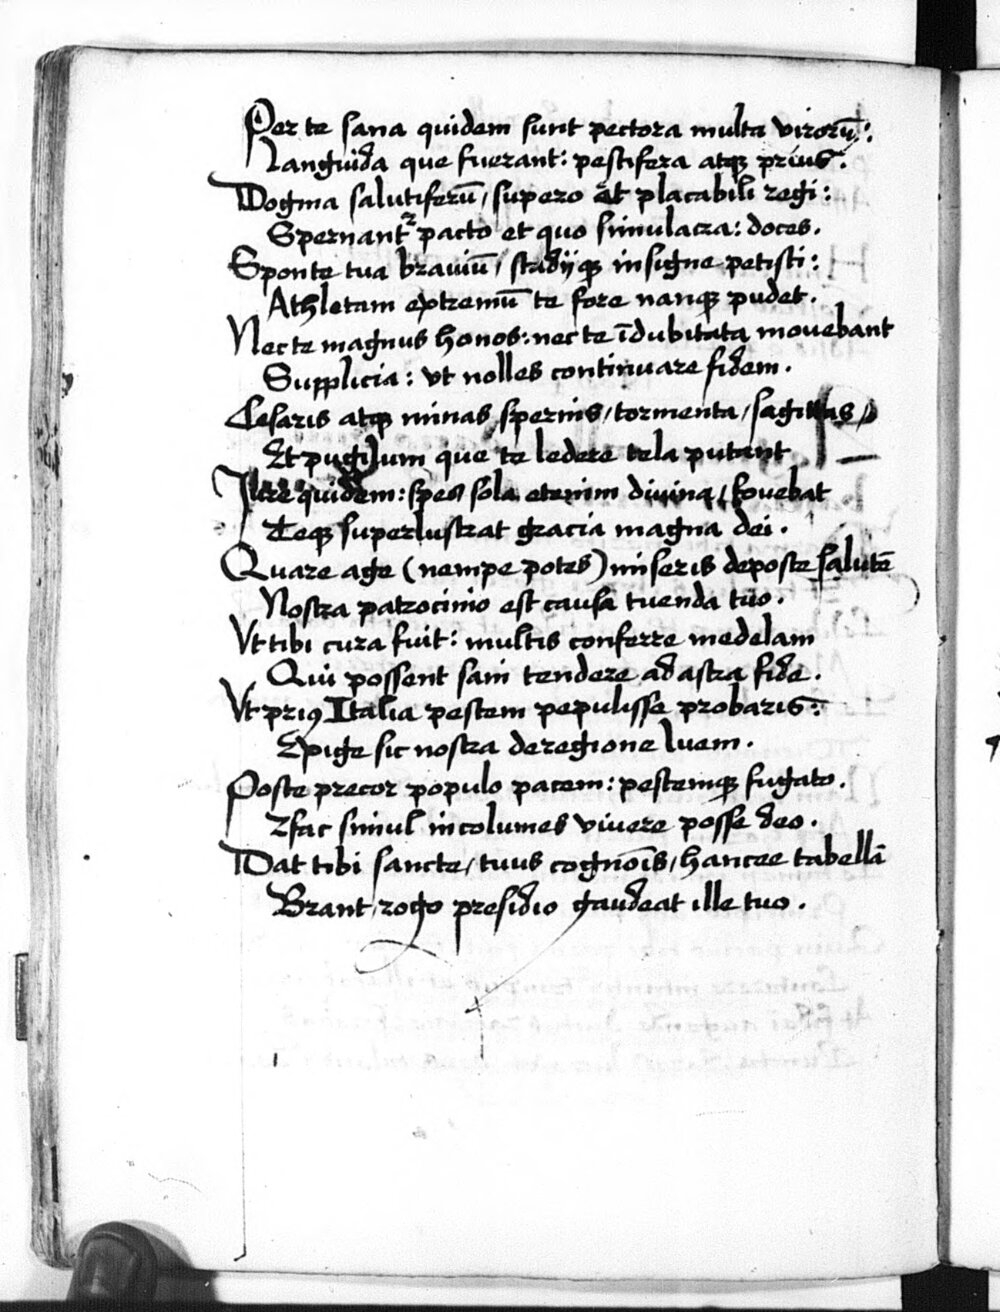 Per te sana quidem sunt pectora multa virorū:
Languida que fuerant: pestifera atqꝫ prius:
Dogma salutiferū / supero āt placabili regi:
Spernantᷣ pacto et quo simulacra: doces.
Sponte tua braviū / stadijqꝫ insigne petisti:
Athletam extremū te fore nanqꝫ pudet.
Nec te magnus honos: nec te īdubitata movebant
Supplicia: vt nolles continuare fidem.
Cesaris atqꝫ minas spernis / tormenta / sagittas /
Et pugilum que te ledere tela putant
Jure quidem: spes sola etenim divina / fovebat
Teqꝫ superlustrat gracia magna dei.
Quare age (nempe potes) miseris deposte salutē
Nostra patrocinio est causa tuenda tuo.
Vt tibi cura fuit: multis conferre medelam
Qui possent sani tendere ad astra fide.
Vt priꝰ Italia pestem pepulisse probaris:
Exige sic nostra de regione luem.
Poste precor populo pacem: pestemqꝫ fugato.
Et fac simul incolumes vivere posse deo.
Dat tibi sancte / tuus cognoīs / hancce tabellā
Brant / rogo presidio gaudeat ille tuo.